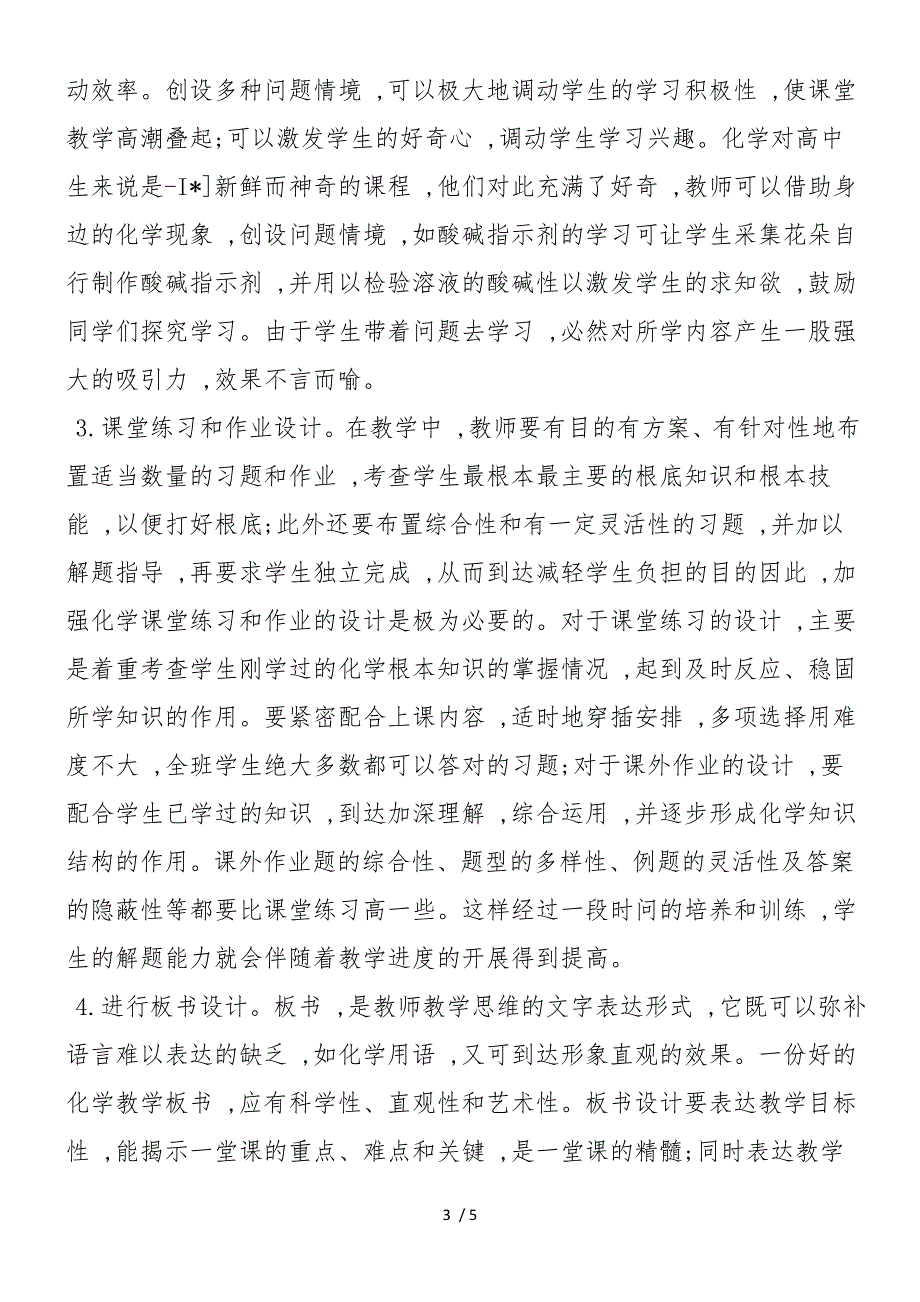 动效率。创设多种问题情境 ,可以极大地调动学生的学习积极性 ,使课堂
教学高潮叠起;可以激发学生的好奇心 ,调动学生学习兴趣。化学对高中
生来说是-I*]新鲜而神奇的课程 ,他们对此充满了好奇 ,教师可以借助身
边的化学现象 ,创设问题情境 ,如酸碱指示剂的学习可让学生采集花朵自
行制作酸碱指示剂 ,并用以检验溶液的酸碱性以激发学生的求知欲 ,鼓励
同学们探究学习。由于学生带着问题去学习 ,必然对所学内容产生一股强
大的吸引力 ,效果不言而喻。
3.课堂练习和作业设计。在教学中 ,教师要有目的有方案、有针对性地布
置适当数量的习题和作业 ,考查学生最根本最主要的根底知识和根本技
能 ,以便打好根底;此外还要布置综合性和有一定灵活性的习题 ,并加以
解题指导 ,再要求学生独立完成 ,从而到达减轻学生负担的目的因此 ,加
强化学课堂练习和作业的设计是极为必要的。对于课堂练习的设计 ,主要
是着重考查学生刚学过的化学根本知识的掌握情况 ,起到及时反应、稳固
所学知识的作用。要紧密配合上课内容 ,适时地穿插安排 ,多项选择用难
度不大 ,全班学生绝大多数都可以答对的习题;对于课外作业的设计 ,要
配合学生已学过的知识 ,到达加深理解 ,综合运用 ,并逐步形成化学知识
结构的作用。课外作业题的综合性、题型的多样性、例题的灵活性及答案
的隐蔽性等都要比课堂练习高一些。这样经过一段时问的培养和训练 ,学
生的解题能力就会伴随着教学进度的开展得到提高。
4.进行板书设计。板书 ,是教师教学思维的文字表达形式 ,它既可以弥补
语言难以表达的缺乏 ,如化学用语 ,又可到达形象直观的效果。一份好的
化学教学板书 ,应有科学性、直观性和艺术性。板书设计要表达教学目标
性 ,能揭示一堂课的重点、难点和关键 ,是一堂课的精髓;同时表达教学
3 / 5